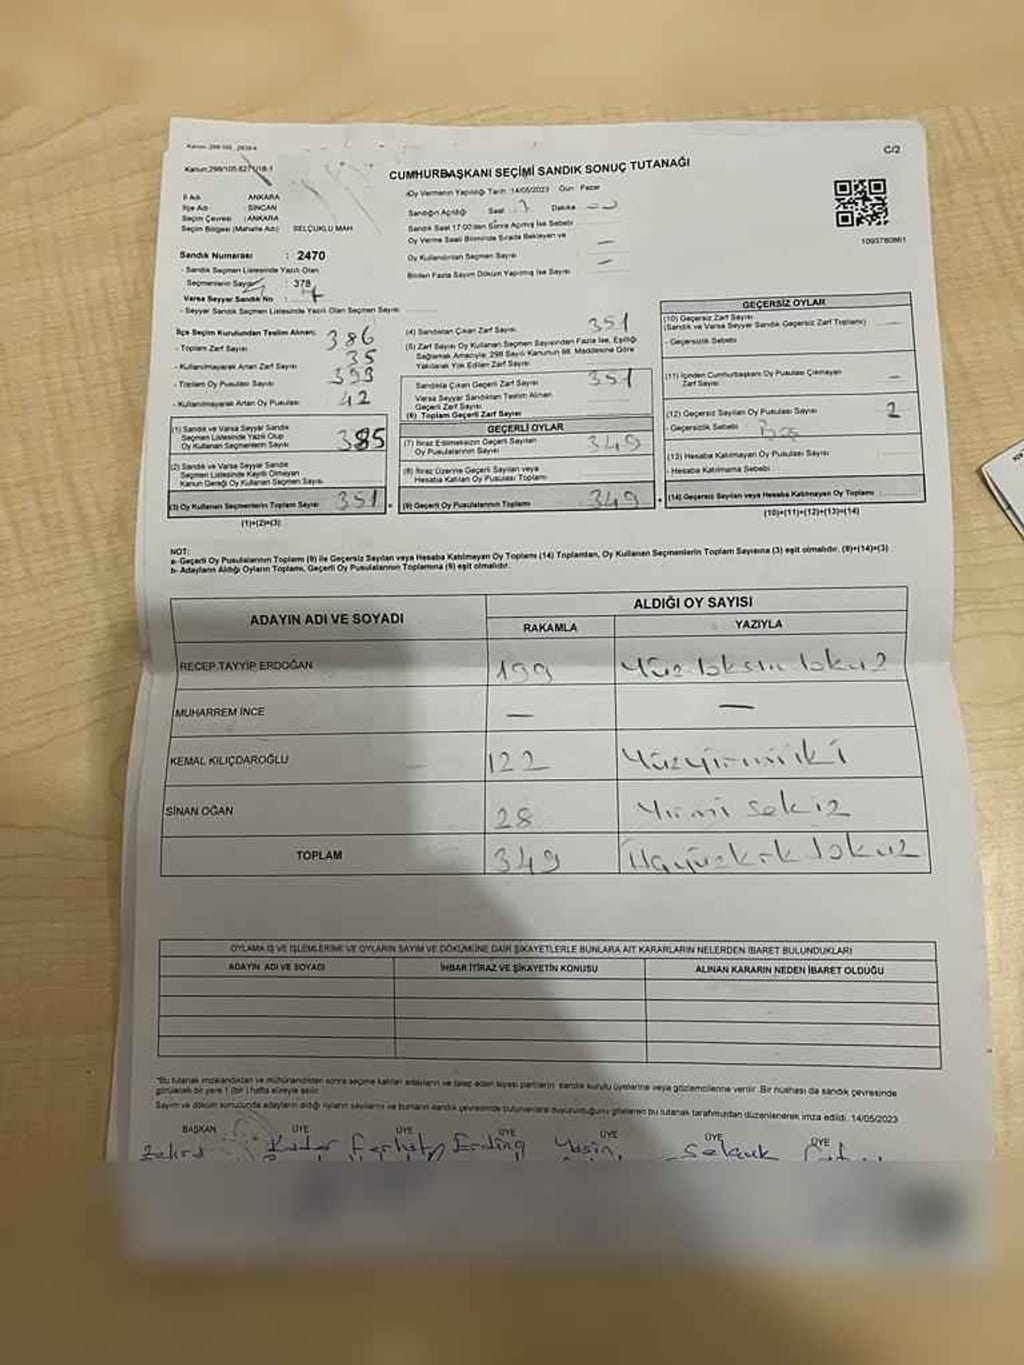 C/2
CUMHURBAŞKANI SEÇİMİ SANDIK SONUÇ TUTANAĞI
Oy Vermenin Yapıldığı Tarih :14/05/2023 Gün : Pazar
İl Adı : ANKARA
İlçe Adı : SİNCAN
Seçim Çevresi : ANKARA
Seçim Bölgesi (Mahalle Adı) SELÇUKLU MAH
Sandığın Açıldığı Saat Dakika
Sandık Saat 17:00'den Sonra Açılmış İse Sebebi
Oy Verme Saati Bitiminde Sırada Bekleyen ve
Oy Kullandırılan Seçmen Sayısı
Birden Fazla Sayım Döküm Yapılmış İse Sayısı
1093780861
Sandık Numarası : 2470
- Sandık Seçmen Listesinde Yazılı Olan
Seçmenlerin Sayısı : 378
Varsa Seyyar Sandık No :
- Seyyar Sandık Seçmen Listesinde Yazılı Olan Seçmen Sayısı
İlçe Seçim Kurulundan Teslim Alınan:
- Toplam Zarf Sayısı 386
- Kullanılmayarak Artan Zarf Sayısı 35
- Toplam Oy Pusulası Sayısı 393
- Kullanılmayarak Artan Oy Pusulası 42
(1) Sandık ve Varsa Seyyar Sandık
Seçmen Listesinde Yazılı Olup
Oy Kullanan Seçmenlerin Sayısı 385
(2) Sandık ve Varsa Seyyar Sandık
Seçmen Listesinde Kayıtlı Olmayan
Kanun Gereği Oy Kullanan Seçmen Sayısı
(3) Oy Kullanan Seçmenlerin Toplam Sayısı 351
(1)+(2)=(3)
(4) Sandıktan Çıkan Zarf Sayısı 351
(5) Zarf Sayısı Oy Kullanan Seçmen Sayısından Fazla İse, Eşitliği
Sağlamak Amacıyla; 298 Sayılı Kanunun 98. Maddesine Göre
Yakılarak Yok Edilen Zarf Sayısı
Sandıkta Çıkan Geçerli Zarf Sayısı 351
Varsa Seyyar Sandıktan Teslim Alınan
Geçerli Zarf Sayısı
(6) Toplam Geçerli Zarf Sayısı
GEÇERLİ OYLAR
(7) İtiraz Edilmeksizin Geçerli Sayılan
Oy Pusulalarının Toplamı 349
(8) İtiraz Üzerine Geçerli Sayılan veya
Hesaba Katılan Oy Pusulası Toplamı
(9) Geçerli Oy Pusulalarının Toplamı 349
GEÇERSİZ OYLAR
(10) Geçersiz Zarf Sayısı
(Sandık ve Varsa Seyyar Sandık Geçersiz Zarf Toplamı)
- Geçersizlik Sebebi
(11) İçinden Cumhurbaşkanı Oy Pusulası Çıkmayan
Zarf Sayısı
(12) Geçersiz Sayılan Oy Pusulası Sayısı 2
- Geçersizlik Sebebi
(13) Hesaba Katılmayan Oy Pusulası Sayısı
- Hesaba Katılmama Sebebi
(14) Geçersiz Sayılan veya Hesaba Katılmayan Oy Toplamı
(10)+(11)+(12)+(13)=(14)
NOT:
a- Geçerli Oy Pusulalarının Toplamı (9) ile Geçersiz Sayılan veya Hesaba Katılmayan Oy Toplamı (14) Toplamları, Oy Kullanan Seçmenlerin Toplam Sayısına (3) eşit olmalıdır. (9)+(14)=(3)
b- Adayların Aldığı Oyların Toplamı, Geçerli Oy Pusulalarının Toplamına (9) eşit olmalıdır.
ADAYIN ADI VE SOYADI ALDIĞI OY SAYISI
RAKAMLA YAZIYLA
RECEP TAYYİP ERDOĞAN 199 Yüz doksan dokuz
MUHARREM İNCE — —
KEMAL KILIÇDAROĞLU 122 Yüzyirmi iki
SİNAN OĞAN 28 Yirmi sekiz
TOPLAM 349 Üçyüzkırk dokuz
OYLAMA İŞ VE İŞLEMLERİNE VE OYLARIN SAYIM VE DÖKÜMÜNE DAİR ŞİKAYETLERLE BUNLARA AİT KARARLARIN NELERDEN İBARET BULUNDUKLARI
ADAYIN ADI VE SOYADI İHBAR İTİRAZ VE ŞİKAYETİN KONUSU ALINAN KARARIN NEDEN İBARET OLDUĞU
*Bu tutanak imzalandıktan ve mühürlendikten sonra seçime katılan adayların ve talep eden siyasi partilerin sandık kurulu üyelerine veya gözlemcilerine verilir. Bir nüshası da sandık çevresinde
görülecek bir yere 1 (bir) hafta süreyle asılır.
Sayım ve döküm sonucunda adayların aldığı oyların sayılarını ve bunların sandık çevresinde bulunanlara duyurulduğunu gösteren bu tutanak tarafımızdan düzenlenerek imza edildi. 14/05/2023
BAŞKAN ÜYE ÜYE ÜYE ÜYE ÜYE ÜYE
Zehra Kader Ferhat Erdinç Yasin Selçuk